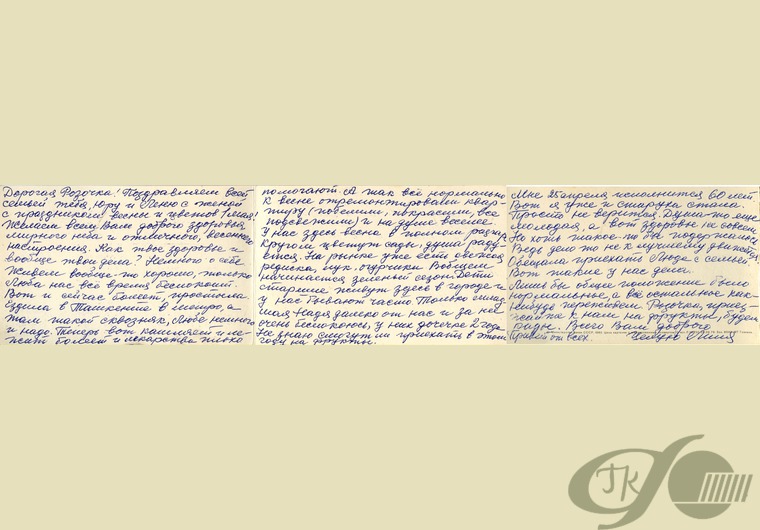 Дорогая Розочка! Поздравляем всей
семьей тебя, Юру и Лёню с женой
с праздником весны и цветов 1 мая!
Желаем всем Вам доброго здоровья
мирного неба и отличного, весеннего
настроения. Как твое здоровье и
вообще твои дела? Немного о себе
Живем вообще-то хорошо, только
Люба нас всё время беспокоит.
Вот и сейчас болеет, простыла.
Ездила в Ташкенте в метро, а
там такой сквозняк, Любе немного
и надо. Теперь вот кашляет и ле-
жит болеет и лекарства плохо
помогают. А так всё нормально
К весне отремонтировали квар-
тиру (побелили, покрасили, все
подсвежили) и на душе веселее
У нас здесь весна в полном разгаре
Кругом цветут сады, душа раду-
ется. На рынке уже есть свежая
редиска, лук, огурчики Вобщем
начинается зеленый сезон. Дети
старшие живут здесь в городе и
у нас бывают часто Только
Надя далеко от нас и за неё
очень беспокоюсь, у них дочечке 2 года
Не знаю смогут ли приехать в этом
году на фрукты.
Мне 25 апреля исполнится 60 лет
Вот я уже и старушка стала.
Просто не верится. Душа-то еще
молодая, а вот здоровье не совсем
Но хоть такое-то бы подержалось
Ведь дело то не к лучшему движется.
Обещала приехать Люде с семьей
Вот такие у нас дела.
Лишь бы общее положение было
нормальным, а всё остальное как-
нибудь переживем Розочка, приез-
жайте к нам на фрукты, будем
рады. Всего Вам доброго
Привет от всех. Целую Лиля
ГК